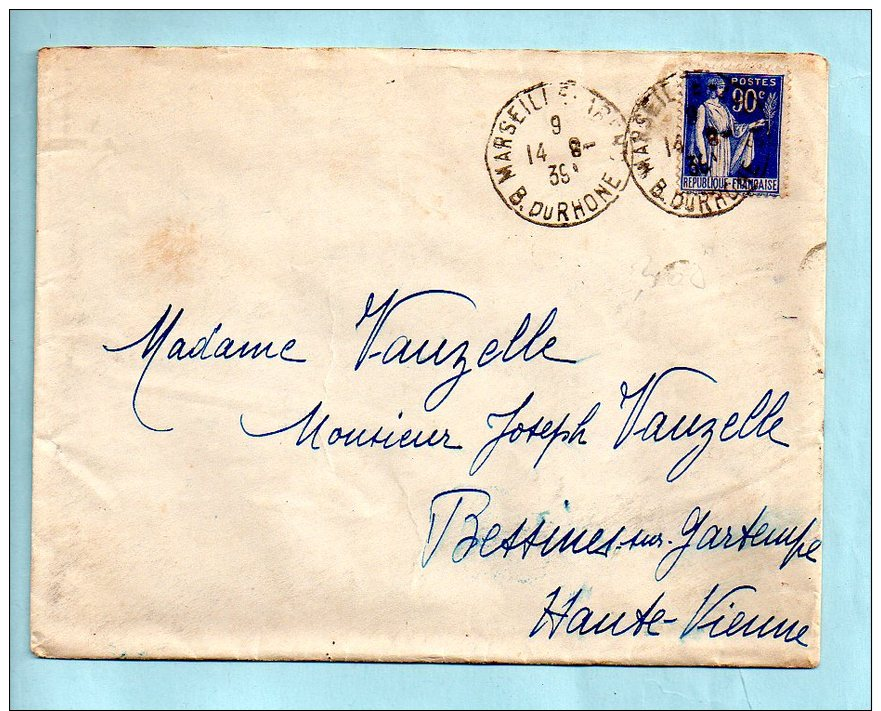 MARSEILLE
9
14 8-
39
B. DU RHONE
MARSEIL
14 8-
39
B. DU RHO
POSTES
90c
REPUBLIQUE FRANCAISE
Madame Vauzelle
Monsieur Joseph Vauzelle
Bessines-sur-Gartempe
Haute-Vienne